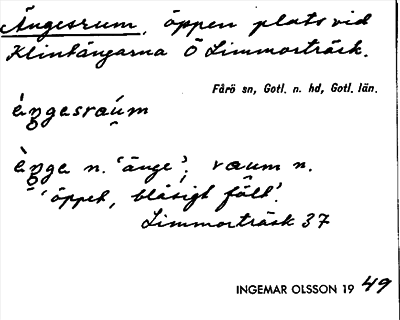 Ängesrum, öppen plats vid
Klintängarna Ö Limmorträsk.
Fårö sn, Gotl. n. hd, Gotl. län.
èŋgesraúm
èŋge n. 'änge'; raum n.
'öppet, blåsigt fält'.
Limmorträsk 37
INGEMAR OLSSON 1949